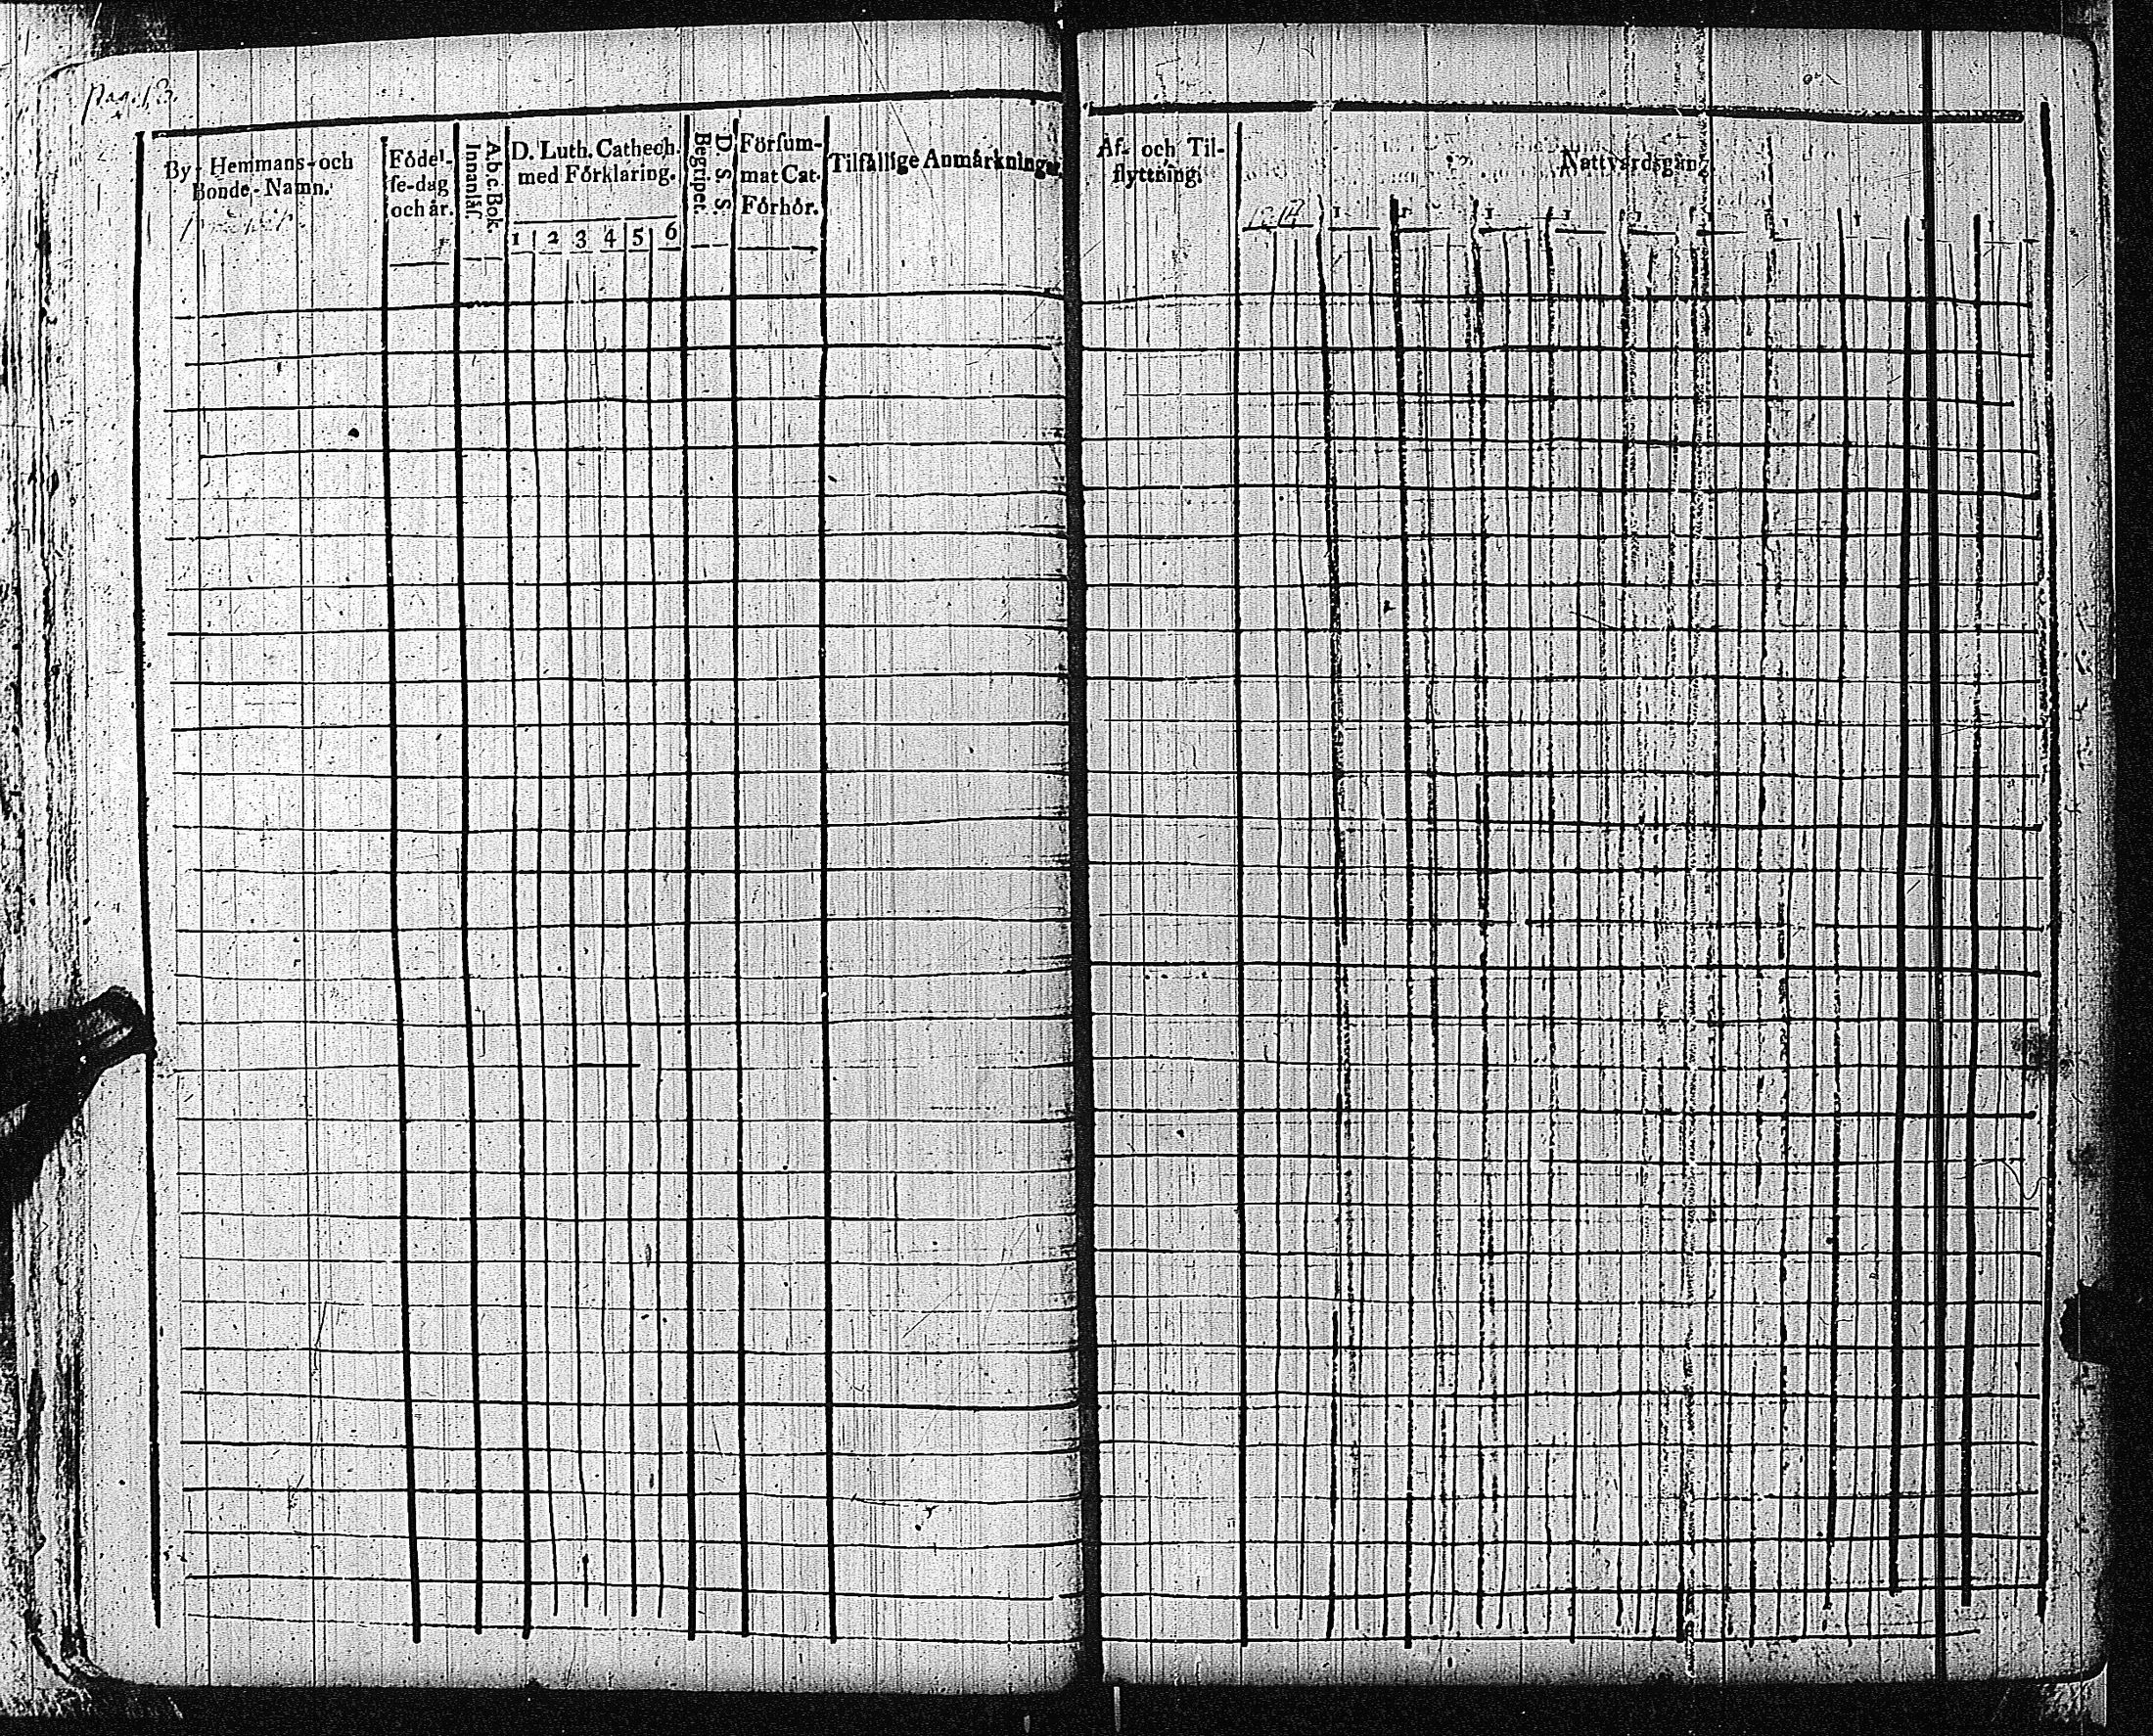 By- Hemmans- och
Bonde- Namn.
Födel-
se-dag
och år.
A.b.c. Bok.
Innanläs.
D. Luth. Cathech.
med Förklaring.
1 2 3 4 5 6
D. S. S.
Begriper.
Försum-
mat Cat.
Förhör.
Tilfällige Anmärkningar.
Af- och Til-
flyttning.
Nattvardsgång
1 1 1 1 1 1 1 1 1 1